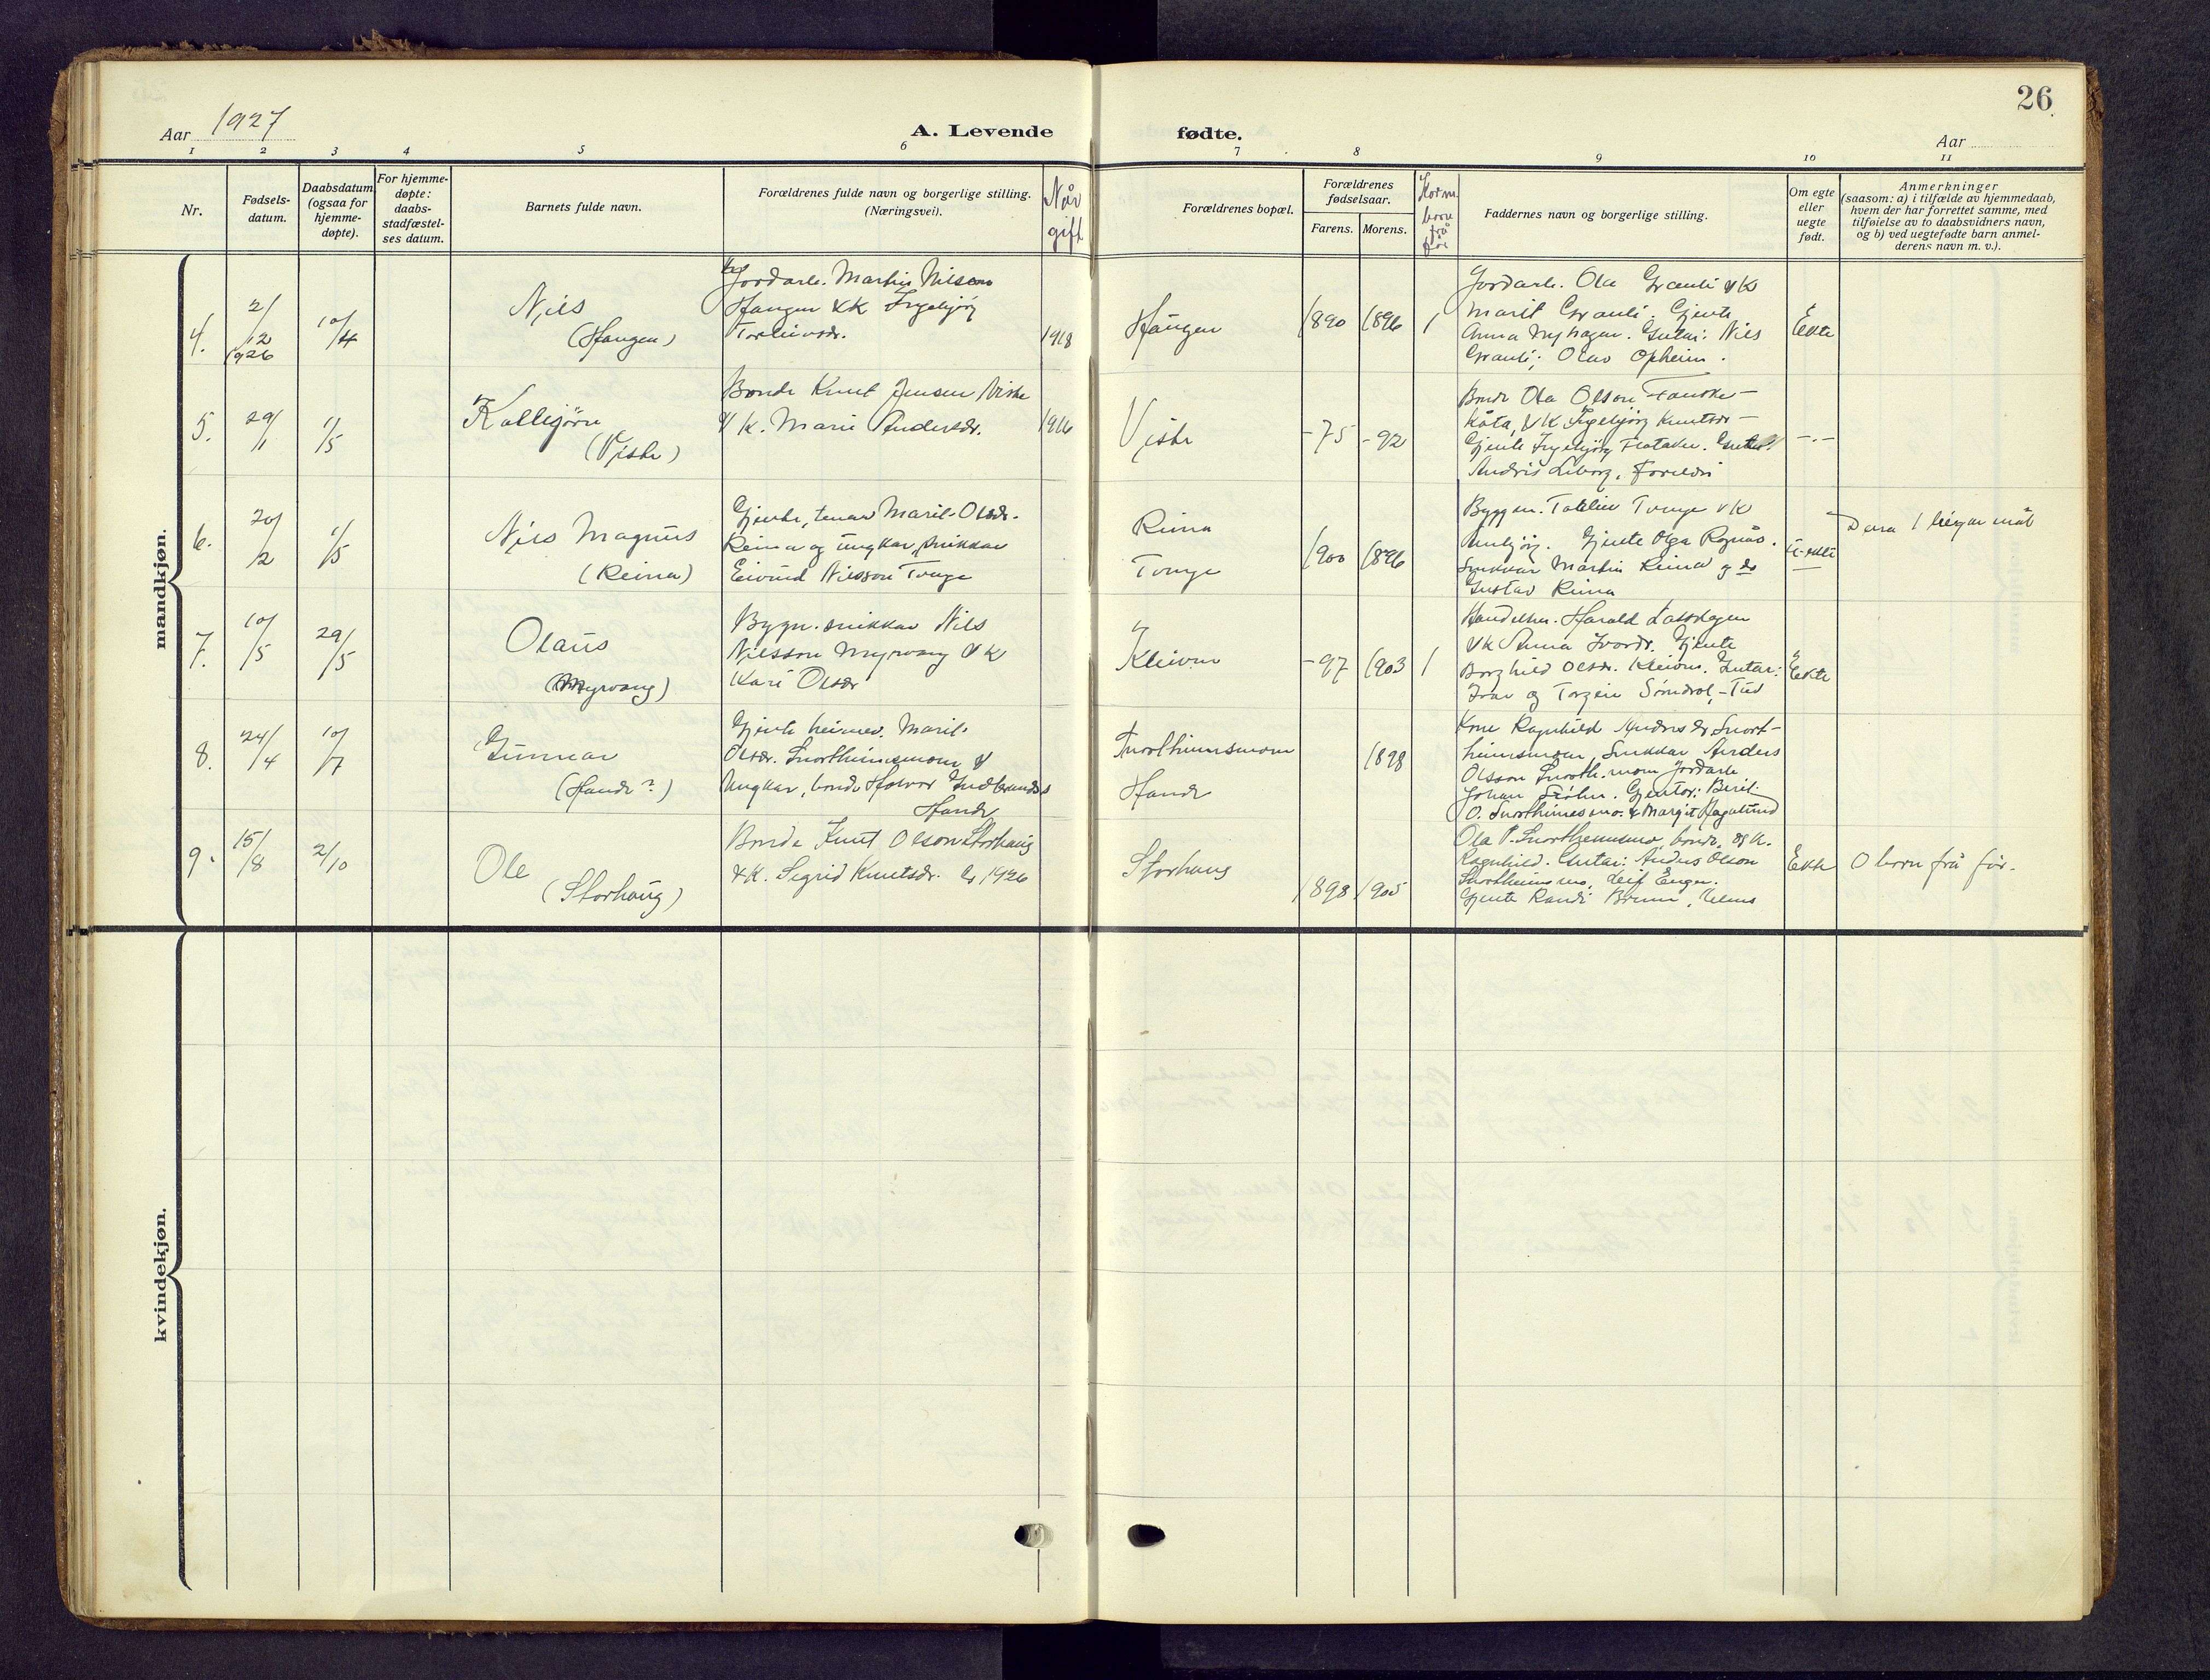 26
Aar 1927
A. Levende fødte.
Aar
1 2 3 4 5 6 7 8 9 10 11
Nr.
Fødsels-
datum.
Daabsdatum
(ogsaa for
hjemme-
døpte).
For hjemme-
døpte:
daabs-
stadfæstel-
ses datum.
Barnets fulde navn.
Forældrenes fulde navn og borgerlige stilling.
(Næringsvei).
Når
gift
Forældrenes bopæl.
Forældrenes
fødselsaar.
Farens. Morens.
Faddernes navn og borgerlige stilling.
Om egte
eller
uegte
født.
Anmerkninger
(saasom: a) i tilfælde av hjemmedaab,
hvem der har forrettet samme, med
tilføielse av to daabsvidners navn,
og b) ved uegtefødte barn anmel-
derens navn m. v.).
mandkjøn.
4.
2/12
1926
10/4
Nils
(Haugen)
Jordarb. Martin Nilsson
Haugen & K Ingebjörg
Torleivsdr.
1918
Haugen
1890 1896 1
Jordarb. Ola Granli & K
Marit Granli. Gjente
Anna Nyhagen. Gutar: Nils
Granli; Olav Opheim.
Ekte
5.
29/1
1/5
(Viste)
Bonde Knut Jensen Viste
& K. Marie Andersdr.
1916
Viste
-75 -92
Bonde Ola Olson
Kåta, & K Ingebjörg Knutsdr
Gjente Ingebjörg
Andris Liborg. Foreldri
-.-
6.
20/2
1/5
Nils Magnus
(Reina)
Gjente, tenar Marit Olsdr.
Reina og ungkar, snikkar
Eivind Nilsson Tonge
Reina
Tonge
1900 1896
Byggm. Tollev Tonge & K
Gjente Olga Rognås.
Snikkar Martin Reina og do
Gustav Reina
U-ekte
7.
10/5
29/5
Olaus
(Myrvang)
Bygn. snikkar Nils
Nilsson Myrvang & K
Kari Olsdr
Kleivun
-97 1903 1
Handelsm. Harald
& K Anna Ivarsdr. Gjente
Borghild Olsdr. Kleivun. Gutar:
Ivar og Torgeir Söndrol, Tid
Ekte
8.
24/4
10/7
Gunnar
(Hande?)
Gjente heimev. Marit
Olsdr. Snortheimsmoen &
Ungkar, bonde Halvor Gudbrands
Hande
Snortheimsmoen
Hande
1898
Kone Ragnhild Andersdr Snort-
heimsmoen, Snikkar Anders
Olsson Snorth.moen Jordarb.
Johan Gjentor: Berit
O. Snortheimsmo. & Margit Hagalund
9.
15/8
2/10
Ole
(Storhaug)
Bonde Knut Olson Storhaug
& K. Sigrid Knutsdr. G 1926
Storhaug
1898 1905
Ola P. Snortheimsmo, bonde, og K.
Ragnhild. Gutar: Anders Olson
Snortheimsmo, Leif Engen.
Gjente Randi
Ekte
0 born frå før.
kvindekjøn.